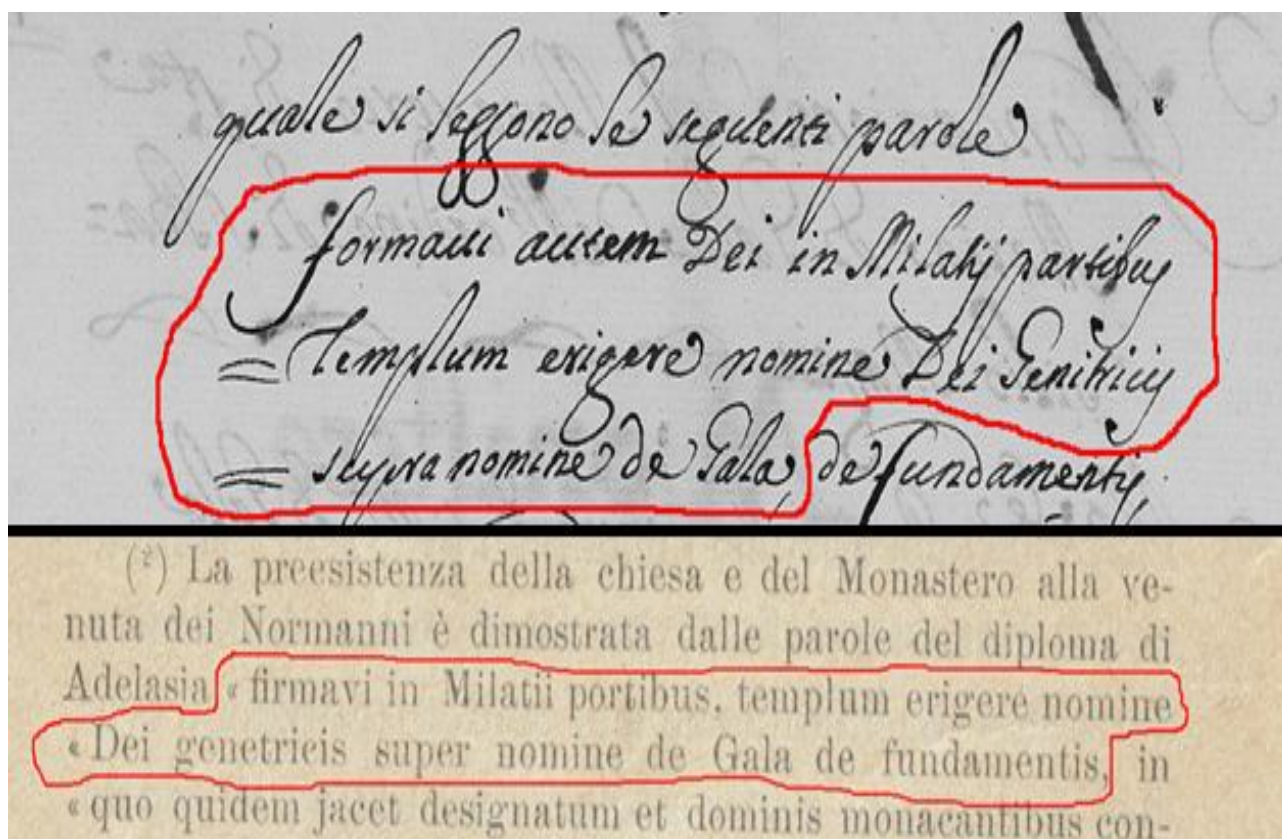 quale si leggono le seguenti parole
formaui autem Dei in Milatij partibus
= Templum erigere nomine Dei Genitricis
= supra nomine de Gala, de fundamentis,
(²) La preesistenza della chiesa e del Monastero alla ve-
nuta dei Normanni è dimostrata dalle parole del diploma di
Adelasia « firmavi in Milatii portibus, templum erigere nomine
« Dei genetricis super nomine de Gala de fundamentis, in
« quo quidem jacet designatum et dominis monacantibus con-